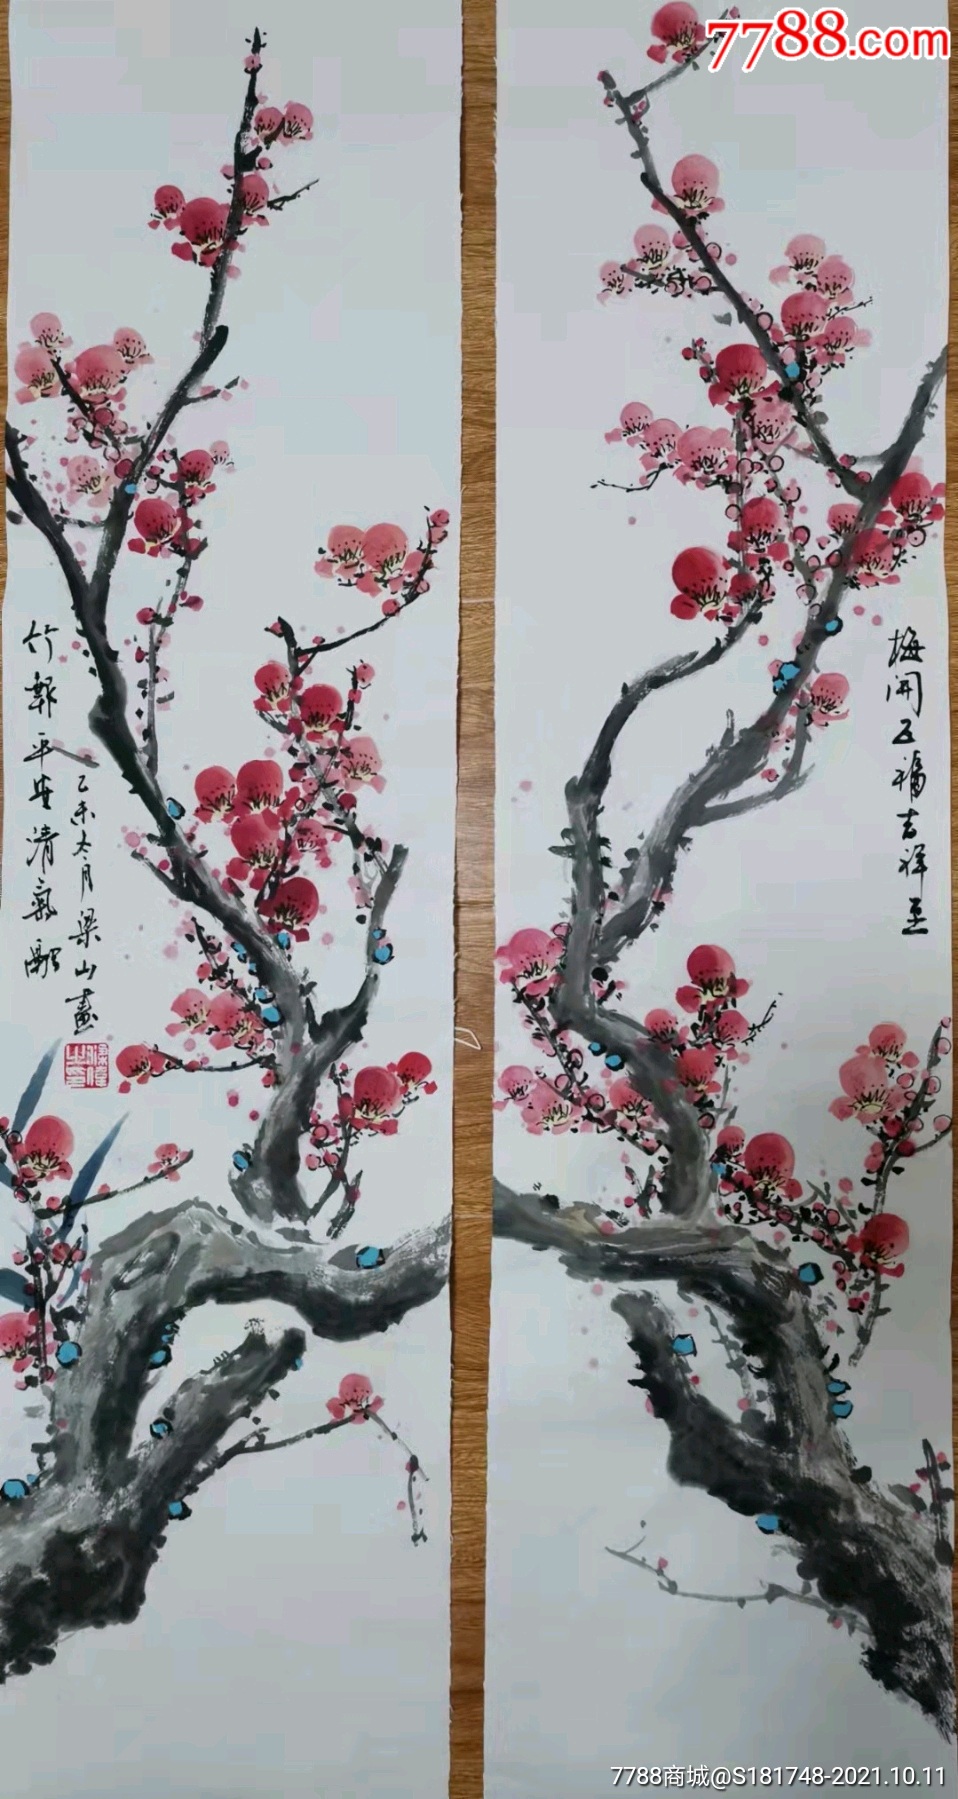 7788.com
梅開五福吉祥至
竹報平安清氣融
乙未冬月梁山畫
7788商城@S181748-2021.10.11